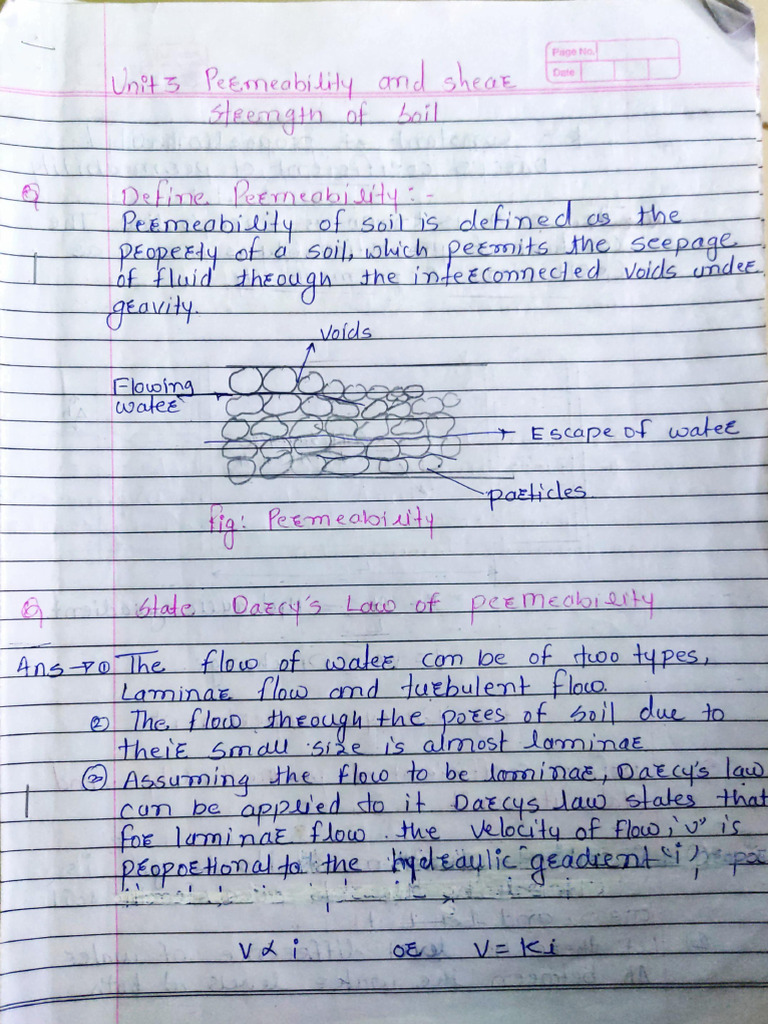 Page No.
Date
Unit 3 Permeability and shear
Strength of Soil
Q Define Permeability:-
Permeability of soil is defined as the
property of a soil, which permits the seepage
of fluid through the interconnected voids under
gravity.
Voids
Flowing
water
Escape of water
particles
fig: Permeability
Q State Darcy's Law of permeability
Ans → ① The flow of water can be of two types,
Laminar flow and turbulent flow.
② The flow through the pores of soil due to
their small size is almost laminar
③ Assuming the flow to be laminar, Darcy's law
can be applied to it Darcys law states that
for laminar flow the velocity of flow, 'v' is
proportional to the hydraulic gradient 'i',
V ∝ i or V = Ki